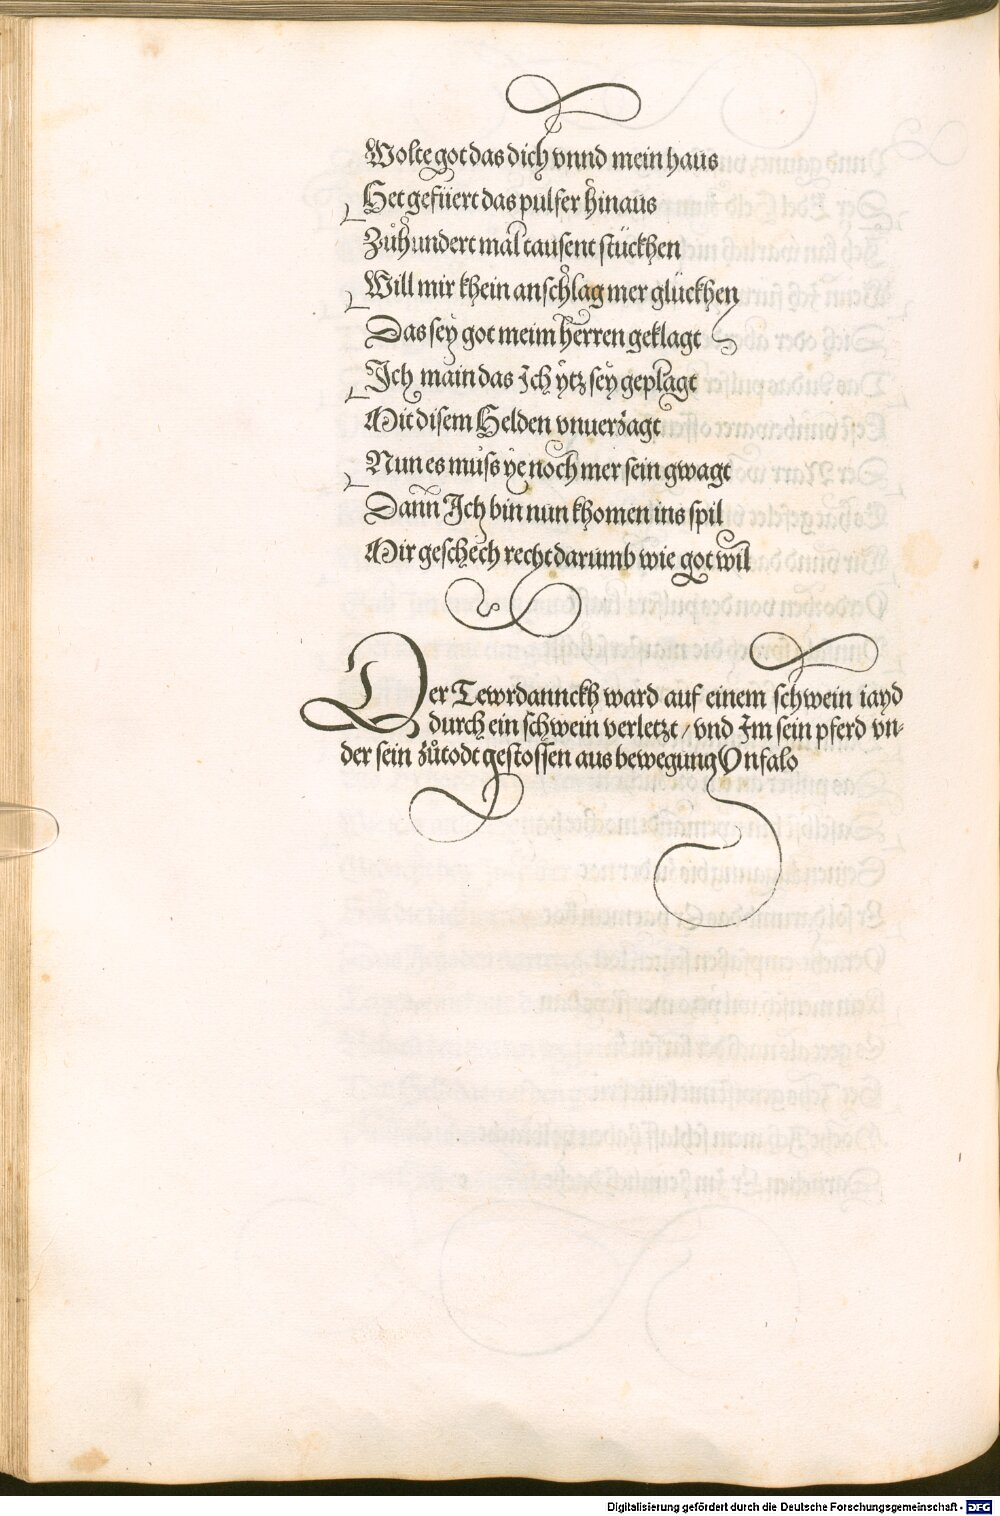 Wolte got das dich vnnd mein haus
Het gefüert das pulfer hinaus
Zůhundert mal tausent stückhen
Will mir khein anschlag mer glückhen
Das sey got meim herren geklagt
Ich main das Ich ytz sey geplagt
Mit disem Helden vnuerzagt
Nun es muss ye noch mer sein gwagt
Dann Ich bin nun khomen ins spil
Mir geschech recht darumb wie got wil
Der Tewrdannckh ward auf einem schwein iayd
durch ein schwein verletzt / vnd Im sein pferd vn-
der sein zůtodt gestossen aus bewegung Vnfalo
Digitalisierung gefördert durch die Deutsche Forschungsgemeinschaft - DFG